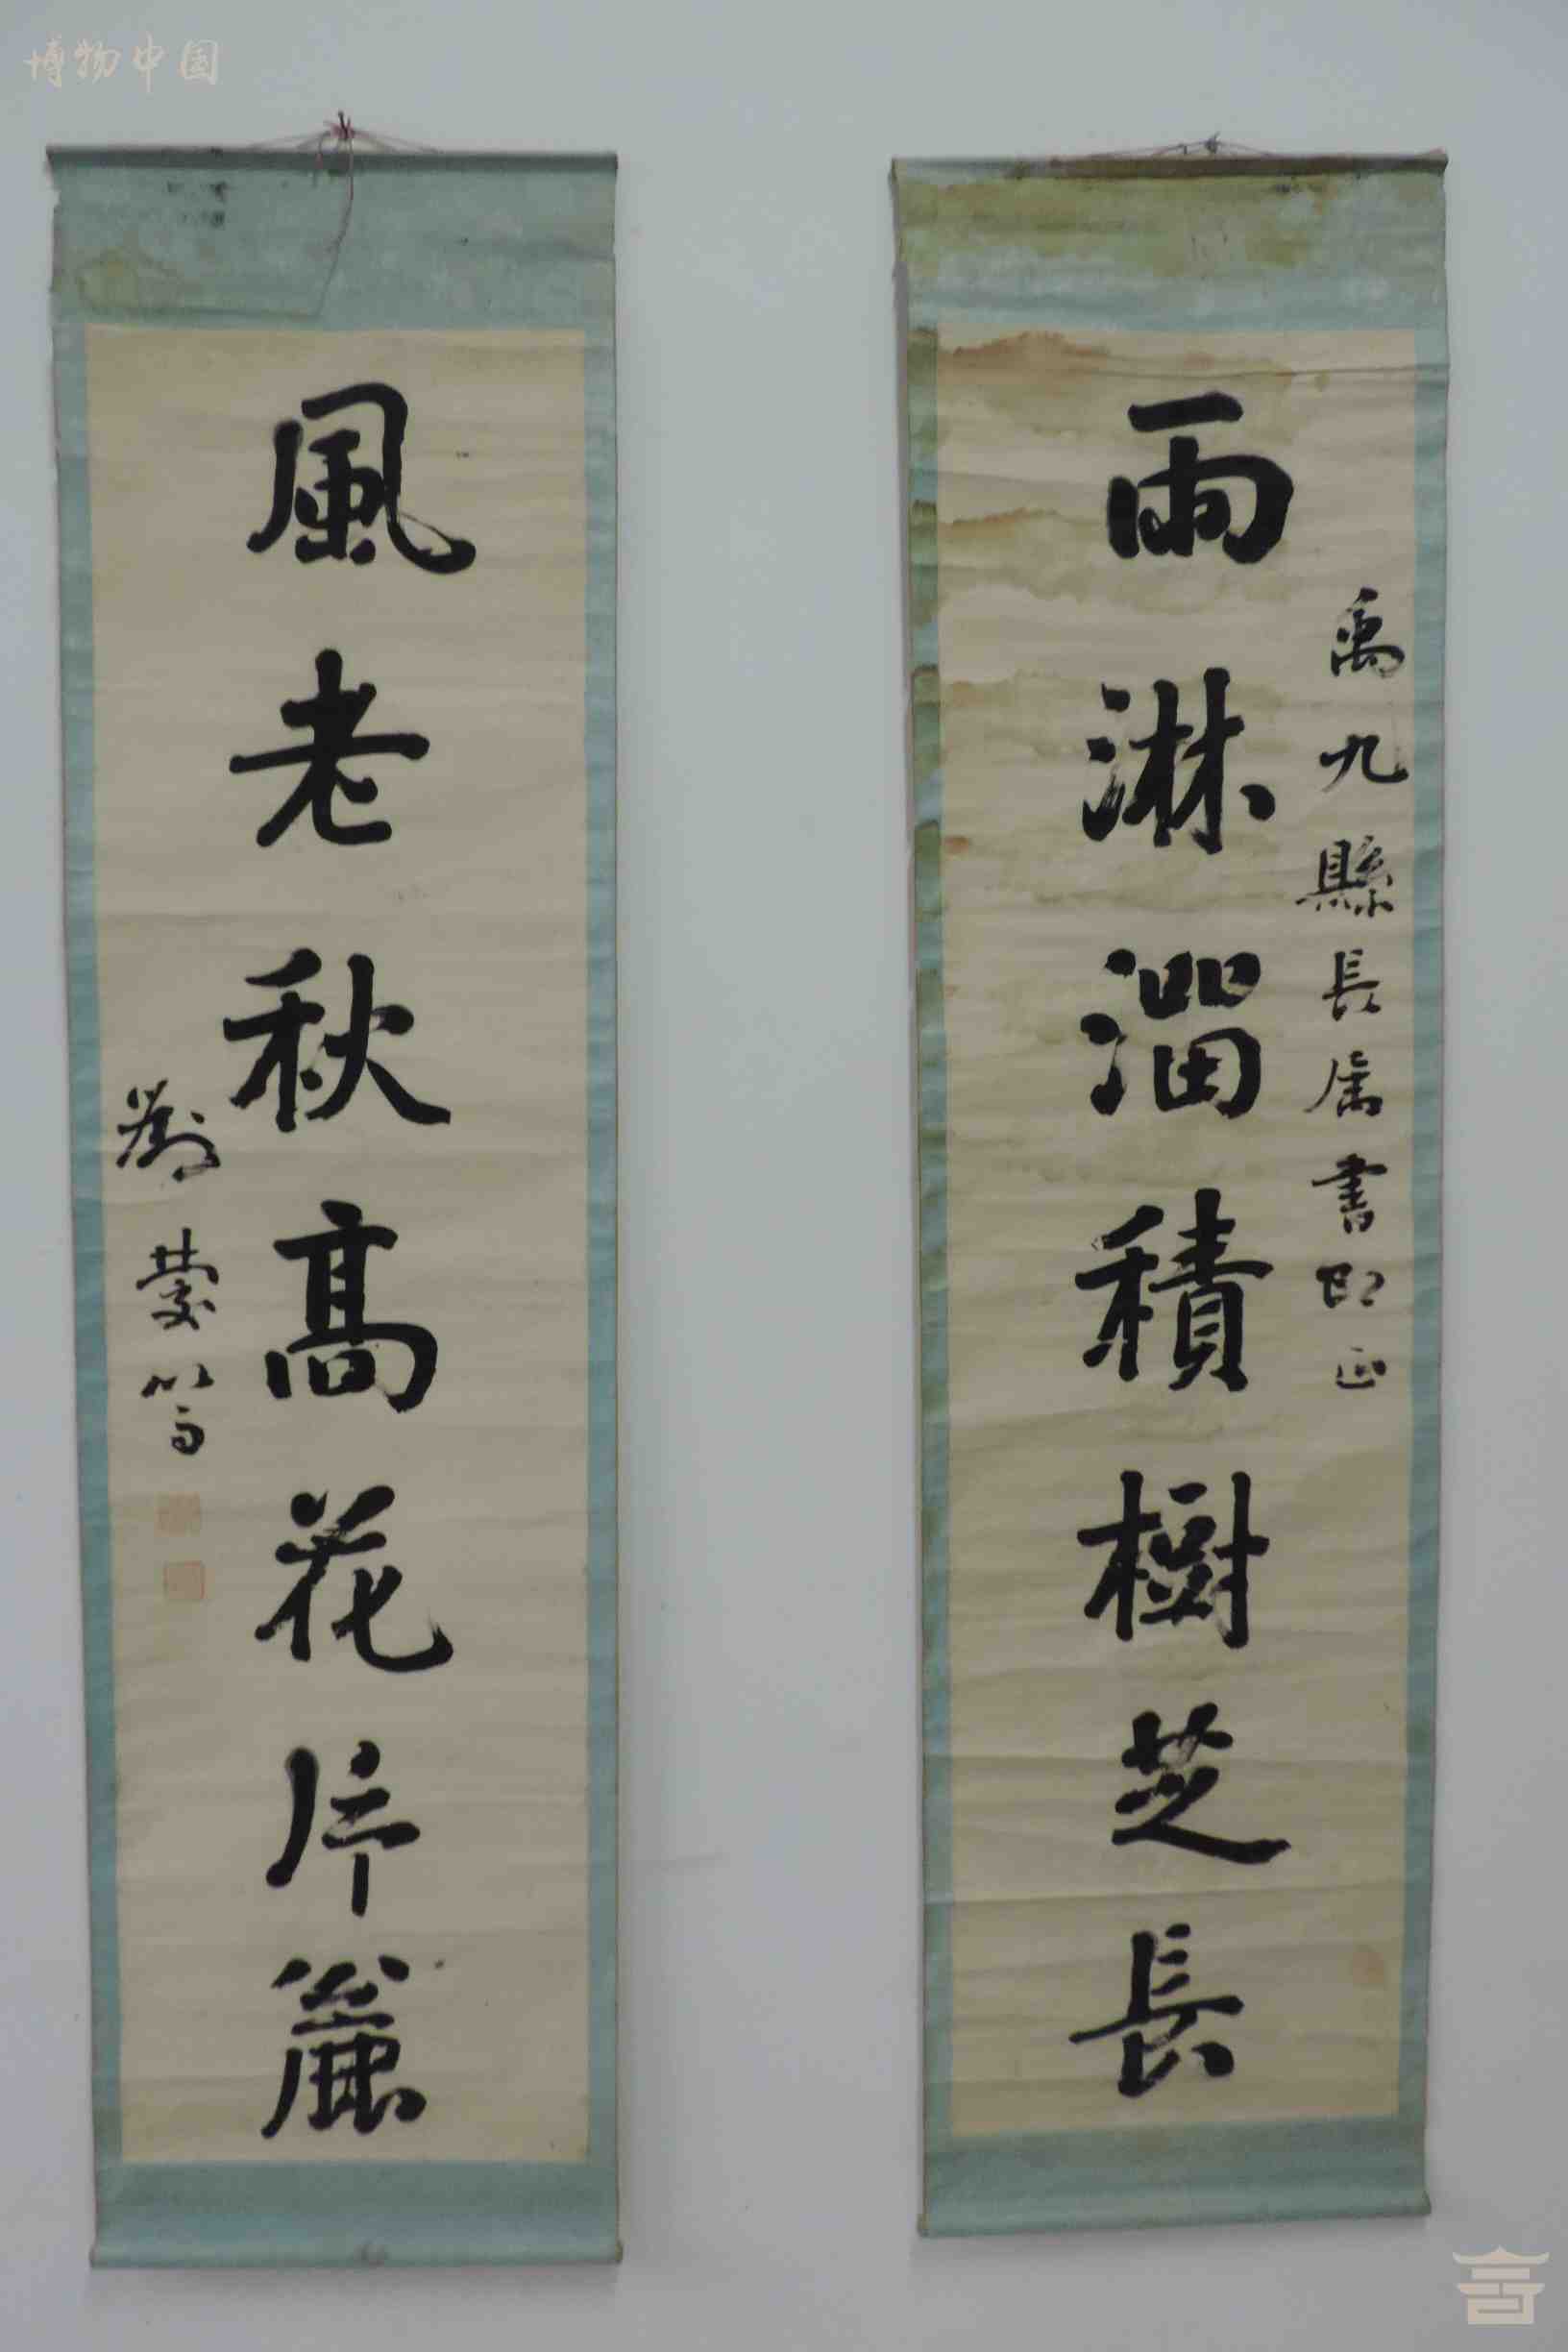 博物中国
雨淋溜積樹芝長
禹九縣長属書即正
風老秋高花片
劉